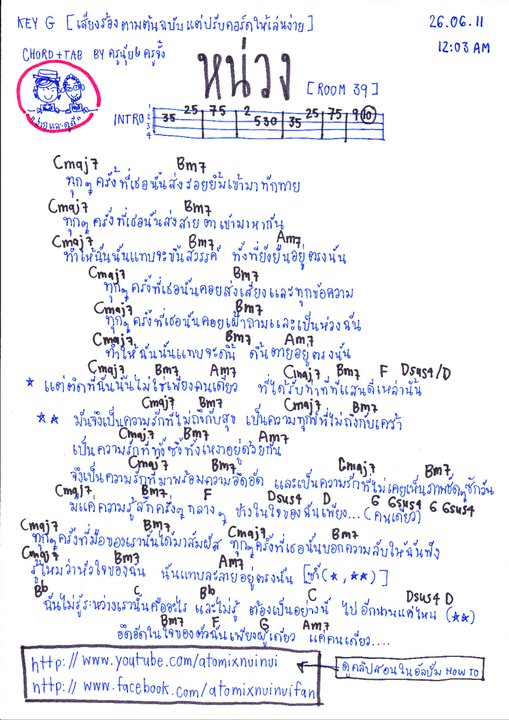 KEY G [เสียงร้องตามต้นฉบับแต่ปรับคอร์ดให้เล่นง่าย]
26.06.11
CHORD+TAB BY ครูนุ้ย&ครูจิ๋ง
12:03 AM
หน่วง
[ROOM 39]
INTRO 1 2 3 4 35 25 75 2 530 35 25 75 9 10
Cmaj7 Bm7
ทุกๆครั้งที่เธอนั้นส่งรอยยิ้มเข้ามาทักทาย
Cmaj7 Bm7
ทุกๆครั้งที่เธอนั้นส่งสายตาเข้ามาหากัน
Cmaj7 Bm7 Am7
ทำให้ฉันนั้นแทบจะขึ้นสวรรค์ ทั้งที่ยังยืนอยู่ตรงนั้น
Cmaj7 Bm7
ทุกๆครั้งที่เธอนั้นคอยส่งเสียงและทุกข้อความ
Cmaj7 Bm7
ทุกๆครั้งที่เธอนั้นคอยเฝ้าถามและเป็นห่วงฉัน
Cmaj7 Bm7 Am7
ทำให้ฉันนั้นแทบจะดิ้น ดิ้นตายอยู่ตรงนั้น
Cmaj7 Bm7 Am7 Cmaj7 Bm7 F Dsus4/D
* แต่ติดที่ฉันนั้นไม่ใช่เพียงคนเดียว ที่ได้รับท่าทีที่แสนดีเหล่านั้น
Cmaj7 Bm7 Cmaj7 Bm7
** มันจึงเป็นความรักที่ไม่ถึงกับสุข เป็นความทุกข์ที่ไม่ถึงกับเศร้า
Cmaj7 Bm7 Am7
เป็นความรักที่ทั้งซึ้งทั้งเหงาอยู่ด้วยกัน
Cmaj7 Bm7 Cmaj7 Bm7
จึงเป็นความรักที่มาพร้อมความอึดอัด และเป็นความรักที่ไม่เคยเห็นภาพชัดๆซักวัน
Cmaj7 Bm7 F Dsus4 D G Gsus4 G Gsus4
มีแค่ความรู้สึกครึ่งๆกลางๆ ข้างในใจของฉันเพียง...(คนเดียว)
Cmaj7 Bm7 Cmaj7 Bm7
ทุกๆครั้งที่มือของเรานั้นได้มาสัมผัส ทุกๆครั้งที่เธอนั้นบอกความลับให้ฉันฟัง
Cmaj7 Bm7 Am7
รู้ไหมว่าหัวใจของฉัน นั้นแทบละลายอยู่ตรงนั้น [ซ้ำ(*,**)]
Bb C Bb C Dsus4 D
ฉันไม่รู้ระหว่างเรานั้นคืออะไร และไม่รู้ ต้องเป็นอย่างนี้ ไปอีกนานแค่ไหน (**)
Bm7 F G Am7
อึดอัดในใจของตัวฉันเพียงผู้เดียว แค่คนเดียว....
http://www.youtube.com/atomixnuinui
ดูคลิปสอนในอัลบั้ม HOW TO
http://www.facebook.com/atomixnuinuifan